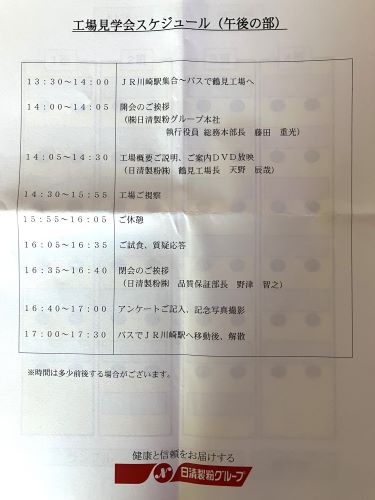 工場見学会スケジュール（午後の部）
１３：３０～１４：００ ＪＲ川崎駅集合～バスで鶴見工場へ
１４：００～１４：０５ 開会のご挨拶
（㈱日清製粉グループ本社
執行役員 総務本部長 藤田 重光）
１４：０５～１４：３０ 工場概要ご説明、ご案内ＤＶＤ放映
（日清製粉㈱ 鶴見工場長 天野 辰哉）
１４：３０～１５：５５ 工場ご視察
１５：５５～１６：０５ ご休憩
１６：０５～１６：３５ ご試食、質疑応答
１６：３５～１６：４０ 閉会のご挨拶
（日清製粉㈱ 品質保証部長 野津 智之）
１６：４０～１７：００ アンケートご記入、記念写真撮影
１７：００～１７：３０ バスでＪＲ川崎駅へ移動後、解散
※時間は多少前後する場合がございます。
健康と信頼をお届けする
日清製粉グループ